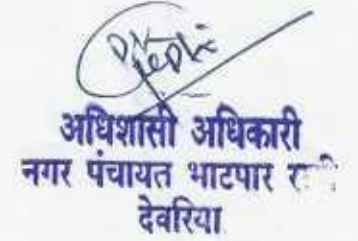 अधिशासी अधिकारी
नगर पंचायत भाटपार
देवरिया